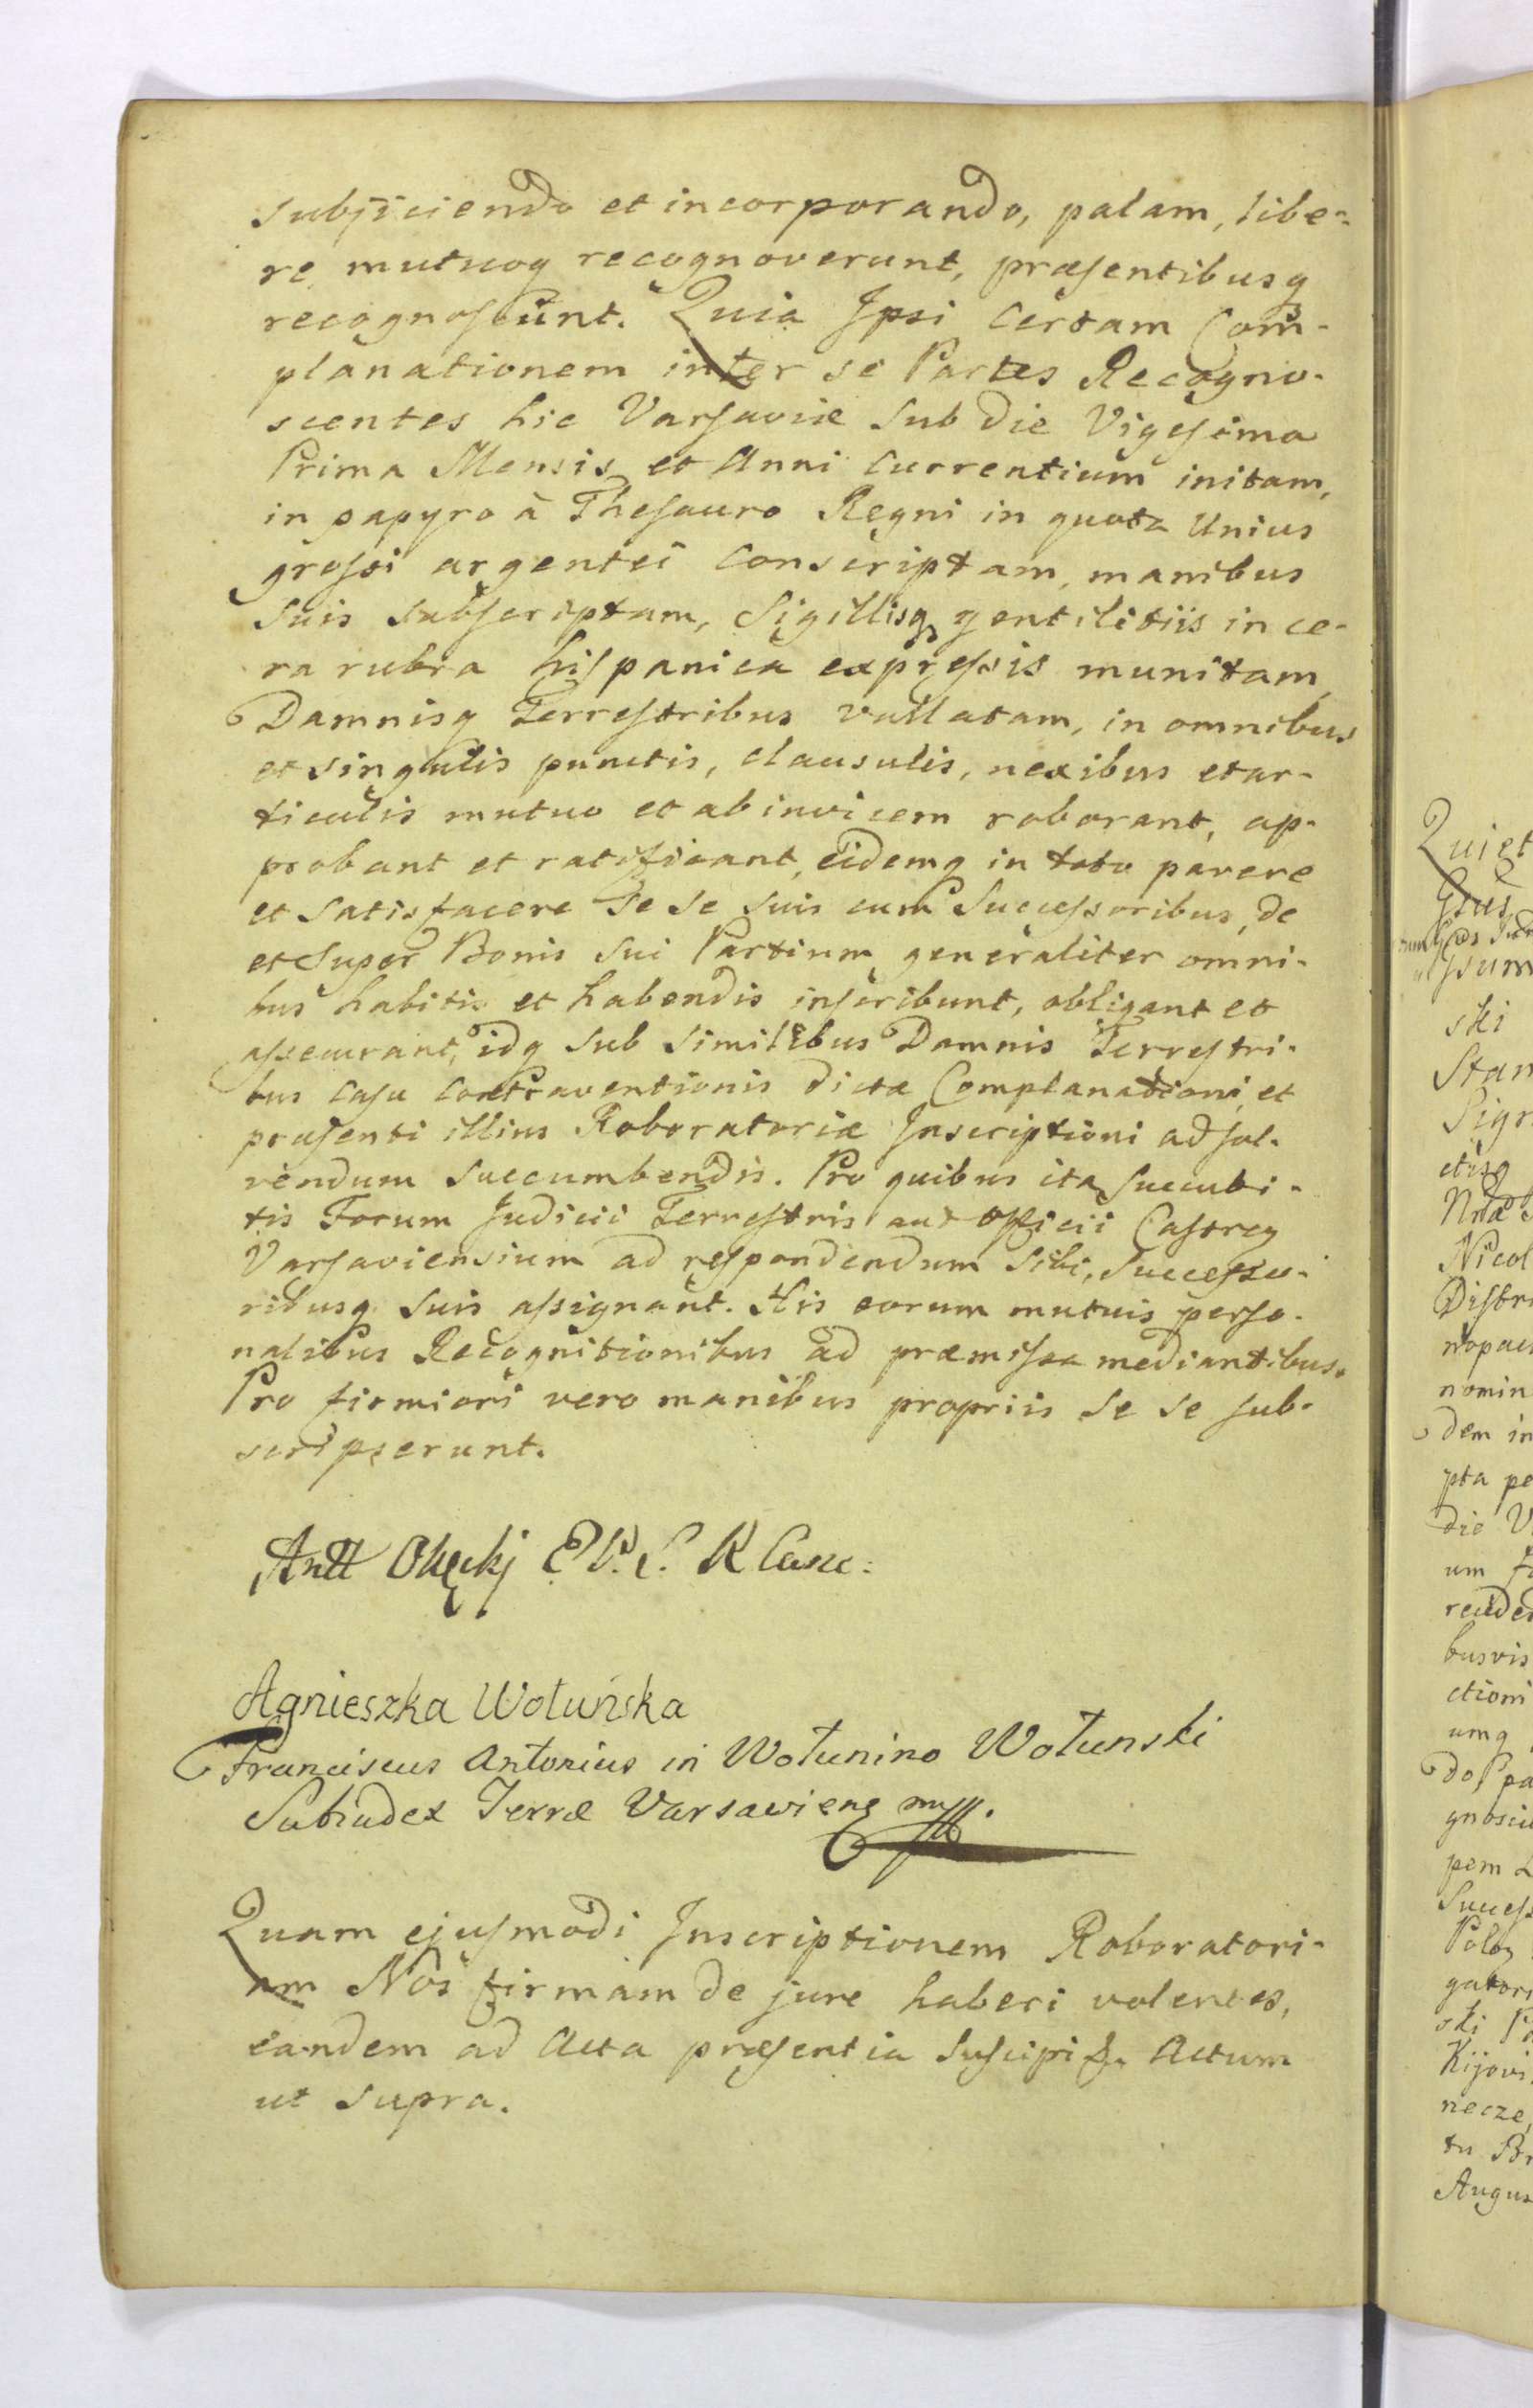 subjiciendo et incorporando, palam, libe-
re, mutuoq recognoverunt, præsentibusq
recognoscunt. Quia Ipsi Certam Com-
planationem inter se Partes Recogno-
scentes hic Varsaviæ sub die Vigesima
Prima Mensis et Anni Currentium initam,
in papyro à Thesauro Regni in quota Unius
grossi argentei Conscriptam, manibus
suis subscriptam, Sigillisq gentilitiis in ce-
ra rubra hispanica expressis munitam,
Damnisq Terrestribus vallatam, in omnibus
et singulis punctis, clausulis, nexibus et ar-
ticulis mutuo et ab invicem roborant, ap-
probant et ratificant, eidemq in toto parere
et satisfacere se se suis cum Successoribus, de
et super Bonis sui Partium generaliter omni-
bus habitis et habendis inscribunt, obligant et
assecurant, idq sub similibus Damnis Terrestri-
bus casu contraventionis dictæ Complanationi, et
præsenti illius Roboratoriæ Inscriptioni ad sol-
vendum succumbendis. Pro quibus ita succubi-
tis Forum Judicii Terrestris aut Officii Castreq
Varsaviensium ad respondendum sibi, Successo-
ribusq suis assignant. His eorum mutuis perso-
nalibus Recognitionibus ad præmissa mediantibus.
Pro firmiori vero manibus propriis se se sub-
scripserunt.
Antt Okęckj E P. C. R Canc:
Agnieszka Wołuńska
Franciscus Antonius in Wołunino Wołunski
Subiudex Terræ Varsaviens mp.
Quam ejusmodi Inscriptionem Roboratori-
am Nos firmam de jure haberi volentes,
eandem ad Acta præsentia suscipi Actum
ut supra.
Quiet
ski
Stan
etisq
Nicol
Distri
nomin
dem in
pta pe
die V
um
busvis
ctioni
umq
pem
Success
Polo
ski
Kijovi
necze,
Augus